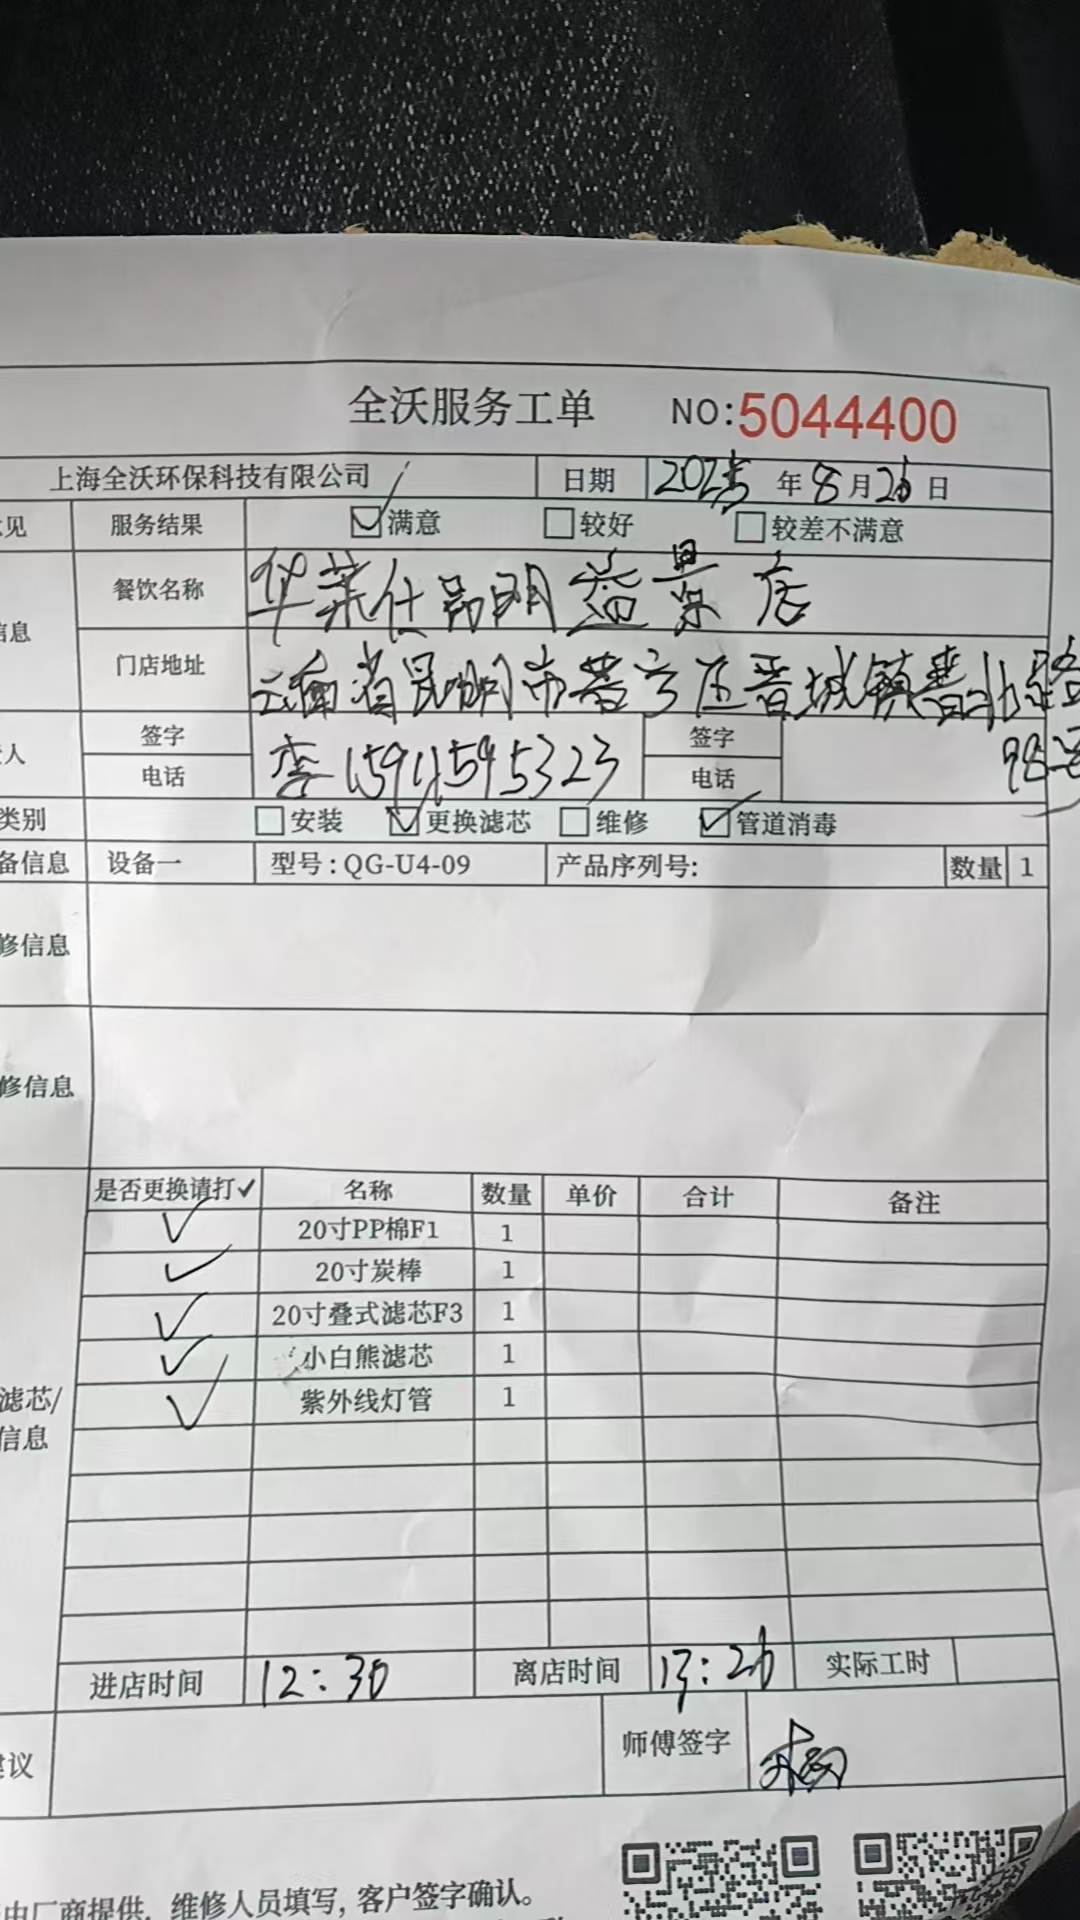 全沃服务工单 NO:5044400
上海全沃环保科技有限公司 日期 2025年8月26日
见 服务结果 满意 较好 较差不满意
信息 餐饮名称 华莱仕昆明益景店
门店地址 云南省昆明市晋宁区晋城镇普北路
98号
人 签字 李 签字
电话 15911595323 电话
类别 安装 更换滤芯 维修 管道消毒
备信息 设备一 型号:QG-U4-09 产品序列号: 数量 1
修信息
修信息
是否更换请打✓ 名称 数量 单价 合计 备注
✓ 20寸PP棉F1 1
✓ 20寸炭棒 1
✓ 20寸叠式滤芯F3 1
✓ 小白熊滤芯 1
滤芯/ ✓ 紫外线灯管 1
信息
进店时间 12:30 离店时间 13:26 实际工时
建议 师傅签字
由厂商提供,维修人员填写,客户签字确认。